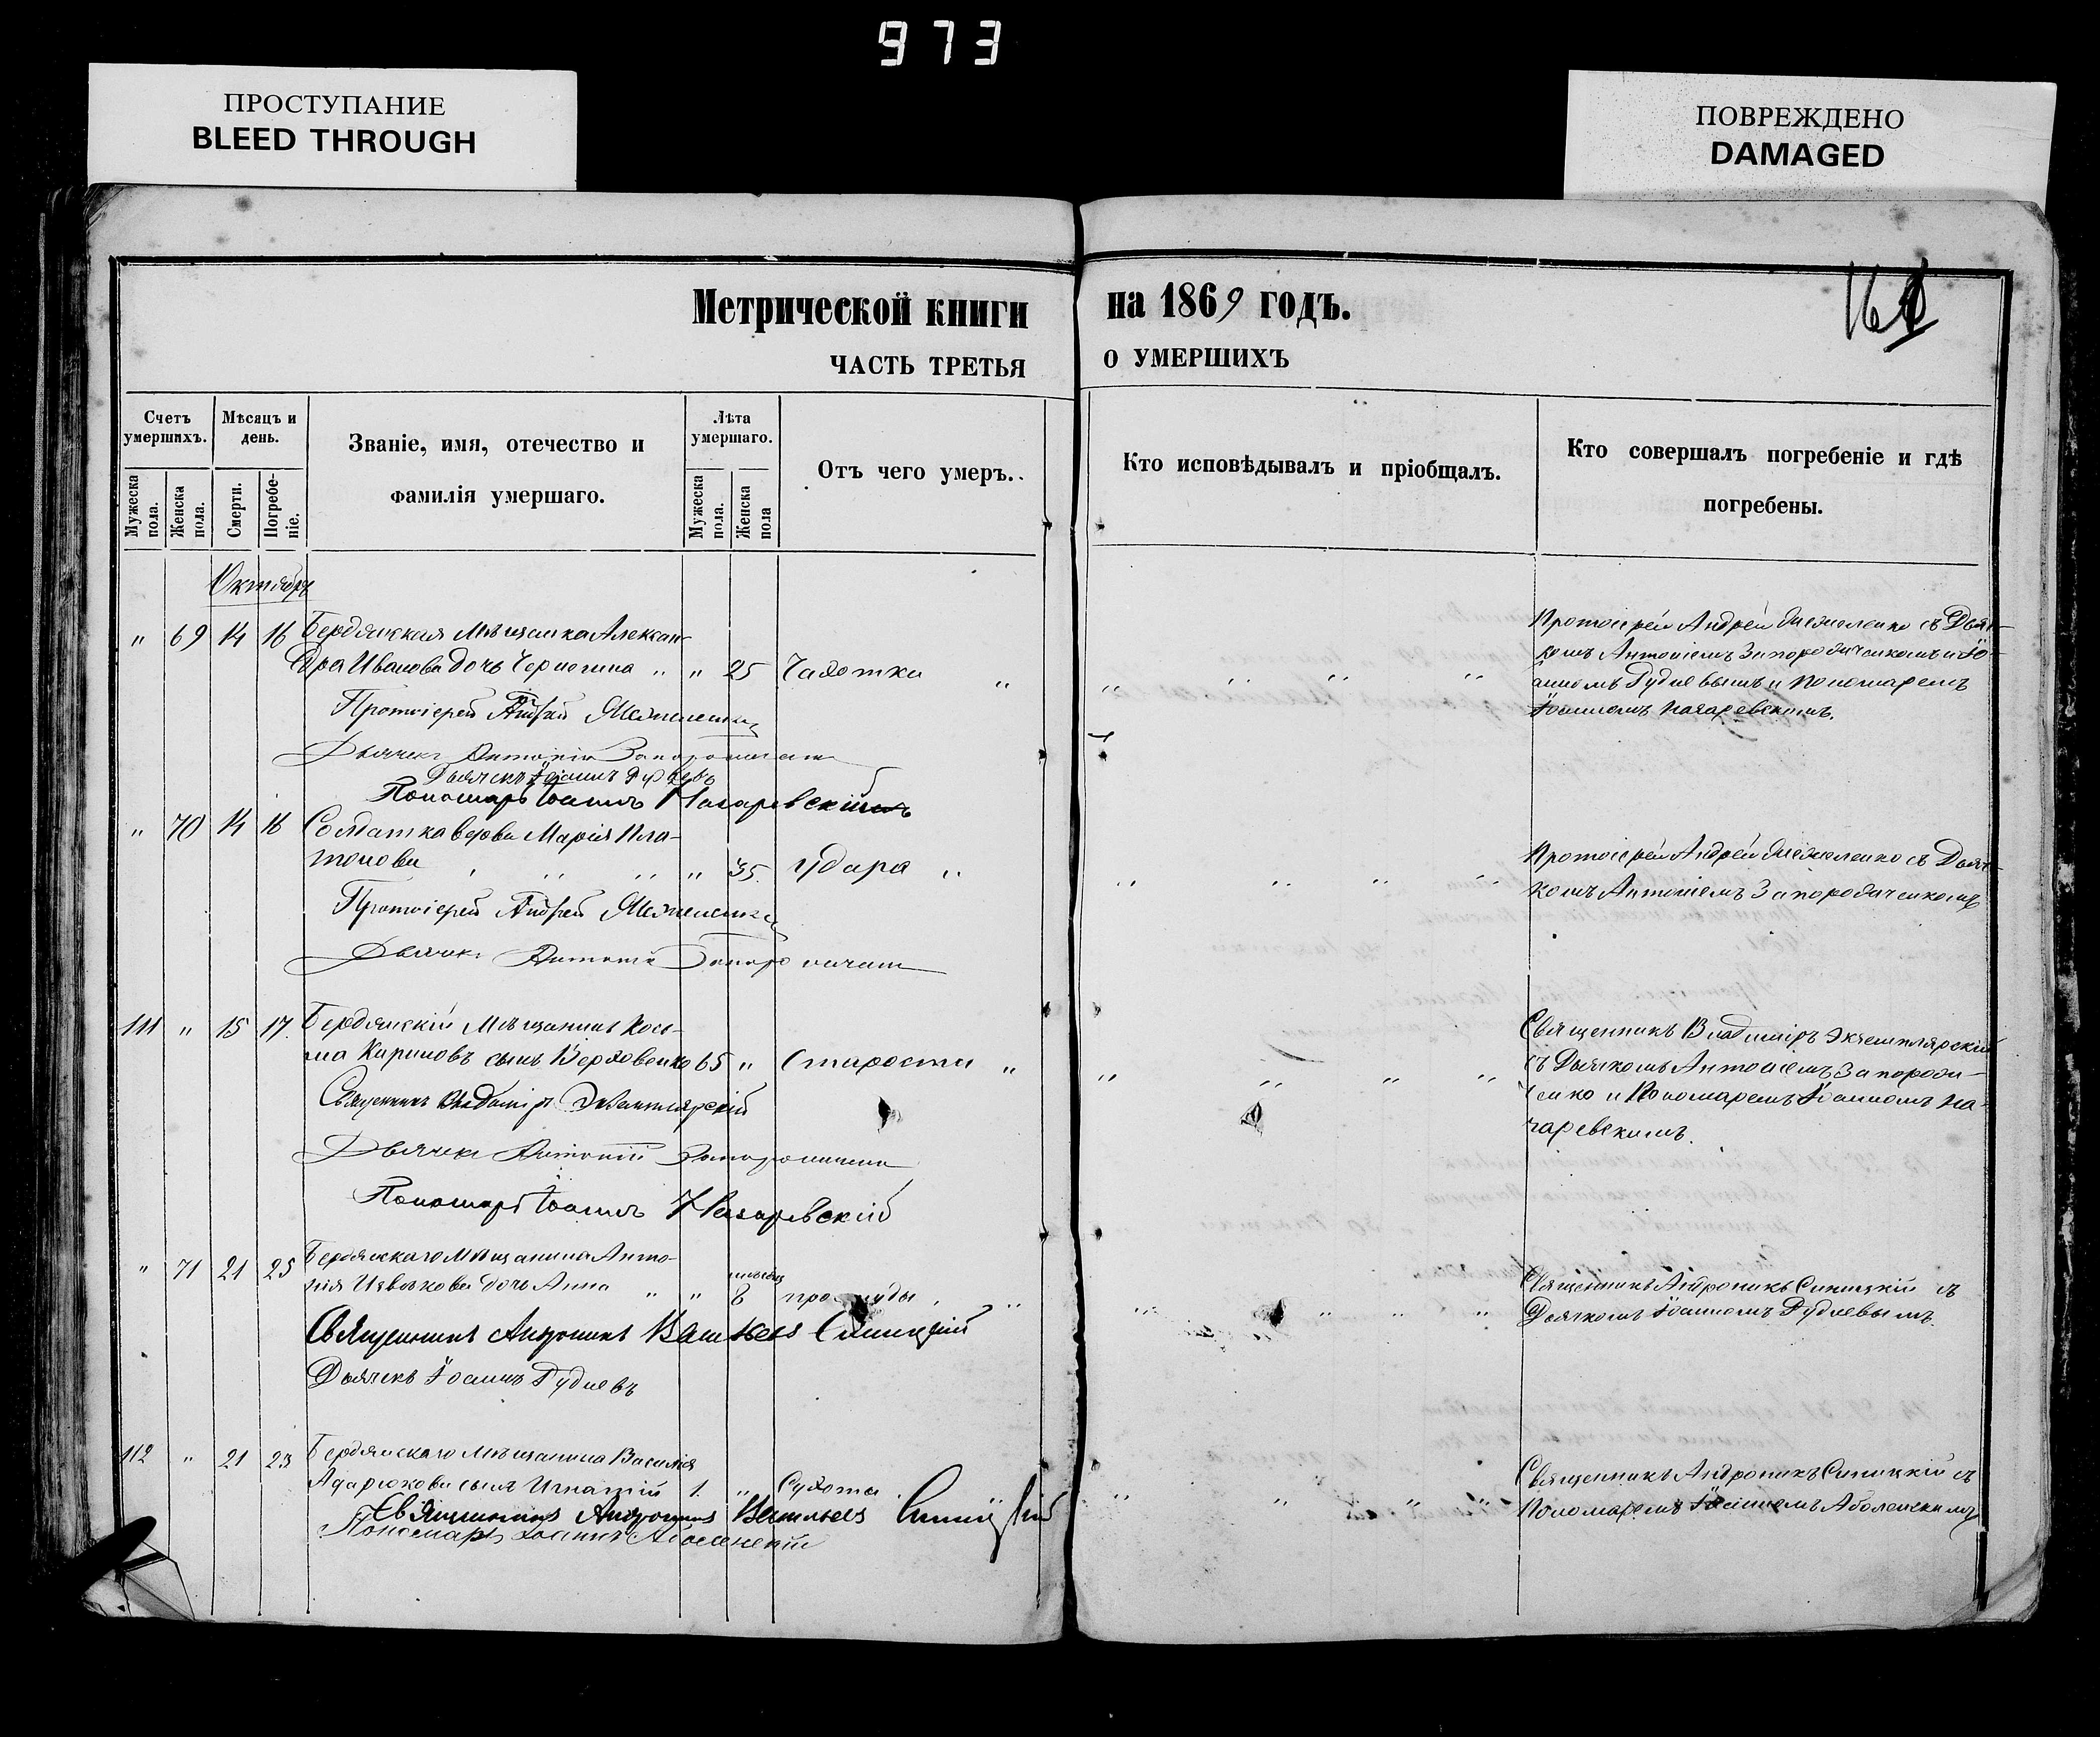 973
ПРОСТУПАНИЕ
BLEED THROUGH
ПОВРЕЖДЕНО
DAMAGED
Метрической книги на 1869 годъ.
ЧАСТЬ ТРЕТЬЯ о УМЕРШИХЪ
Счетъ умершихъ.
Мужеска пола.
Женска пола.
Мѣсяцъ и день.
Смерти.
Погребеніе.
Званіе, имя, отечество и
фамилія умершаго.
Лѣта умершаго.
Мужеска пола.
Женска пола
Отъ чего умеръ.
Кто исповѣдывалъ и пріобщалъ.
Кто совершалъ погребеніе и гдѣ
погребены.
Октябрь
" 69 14 16 Бердянская Мѣщанка Алексан-
дра Иванова дочь " " 25 Чахотки "
Протоіерей Андрей
Дьячекъ Антоній
Дьячекъ Іоаннъ Рудневъ
Пономарь Іоаннъ Назаревскій
Протоіерей Андрей съ Дьяч-
комъ Антоніемъ и Іо-
анномъ Рудневымъ и Пономаремъ
Іоанномъ Назаревскимъ.
" 70 14 16 Солдатка вдова Марія Пла-
тонова " " 35. Удара "
Протоіерей Андрей
Дьячекъ Антоній
Протоіерей Андрей съ Дьяч-
комъ Антоніемъ
111 " 15 17. Бердянскій Мѣщанинъ Кось-
ма Кириловъ сынъ Верховенко 65 " Старости "
Священникъ Владиміръ Экземплярскій
Дьячекъ Антоній
Пономарь Іоаннъ Назаревскій
Священникъ Владиміръ Экземплярскій
съ Дьячкомъ Антоніемъ Запорож-
ченко и Пономаремъ Іоанномъ На-
заревскимъ.
" 71 21 25 Бердянскаго Мѣщанина Анто-
нія дочь Анна " " 8 простуды "
Священникъ Андроникъ Васильевъ Синицкій
Дьячекъ Іоаннъ Рудневъ
Священникъ Андроникъ Синицкій съ
Дьячкомъ Іоанномъ Рудневымъ.
112 " 21 23 Бердянскаго Мѣщанина Василія
сынъ Игнатій 1. " Сухоты
Священникъ Андроникъ Васильевъ Синицкій
Пономарь Іоаннъ Аболенскій
Священникъ Андроникъ Синицкій съ
Пономаремъ Іоанномъ Аболенскимъ